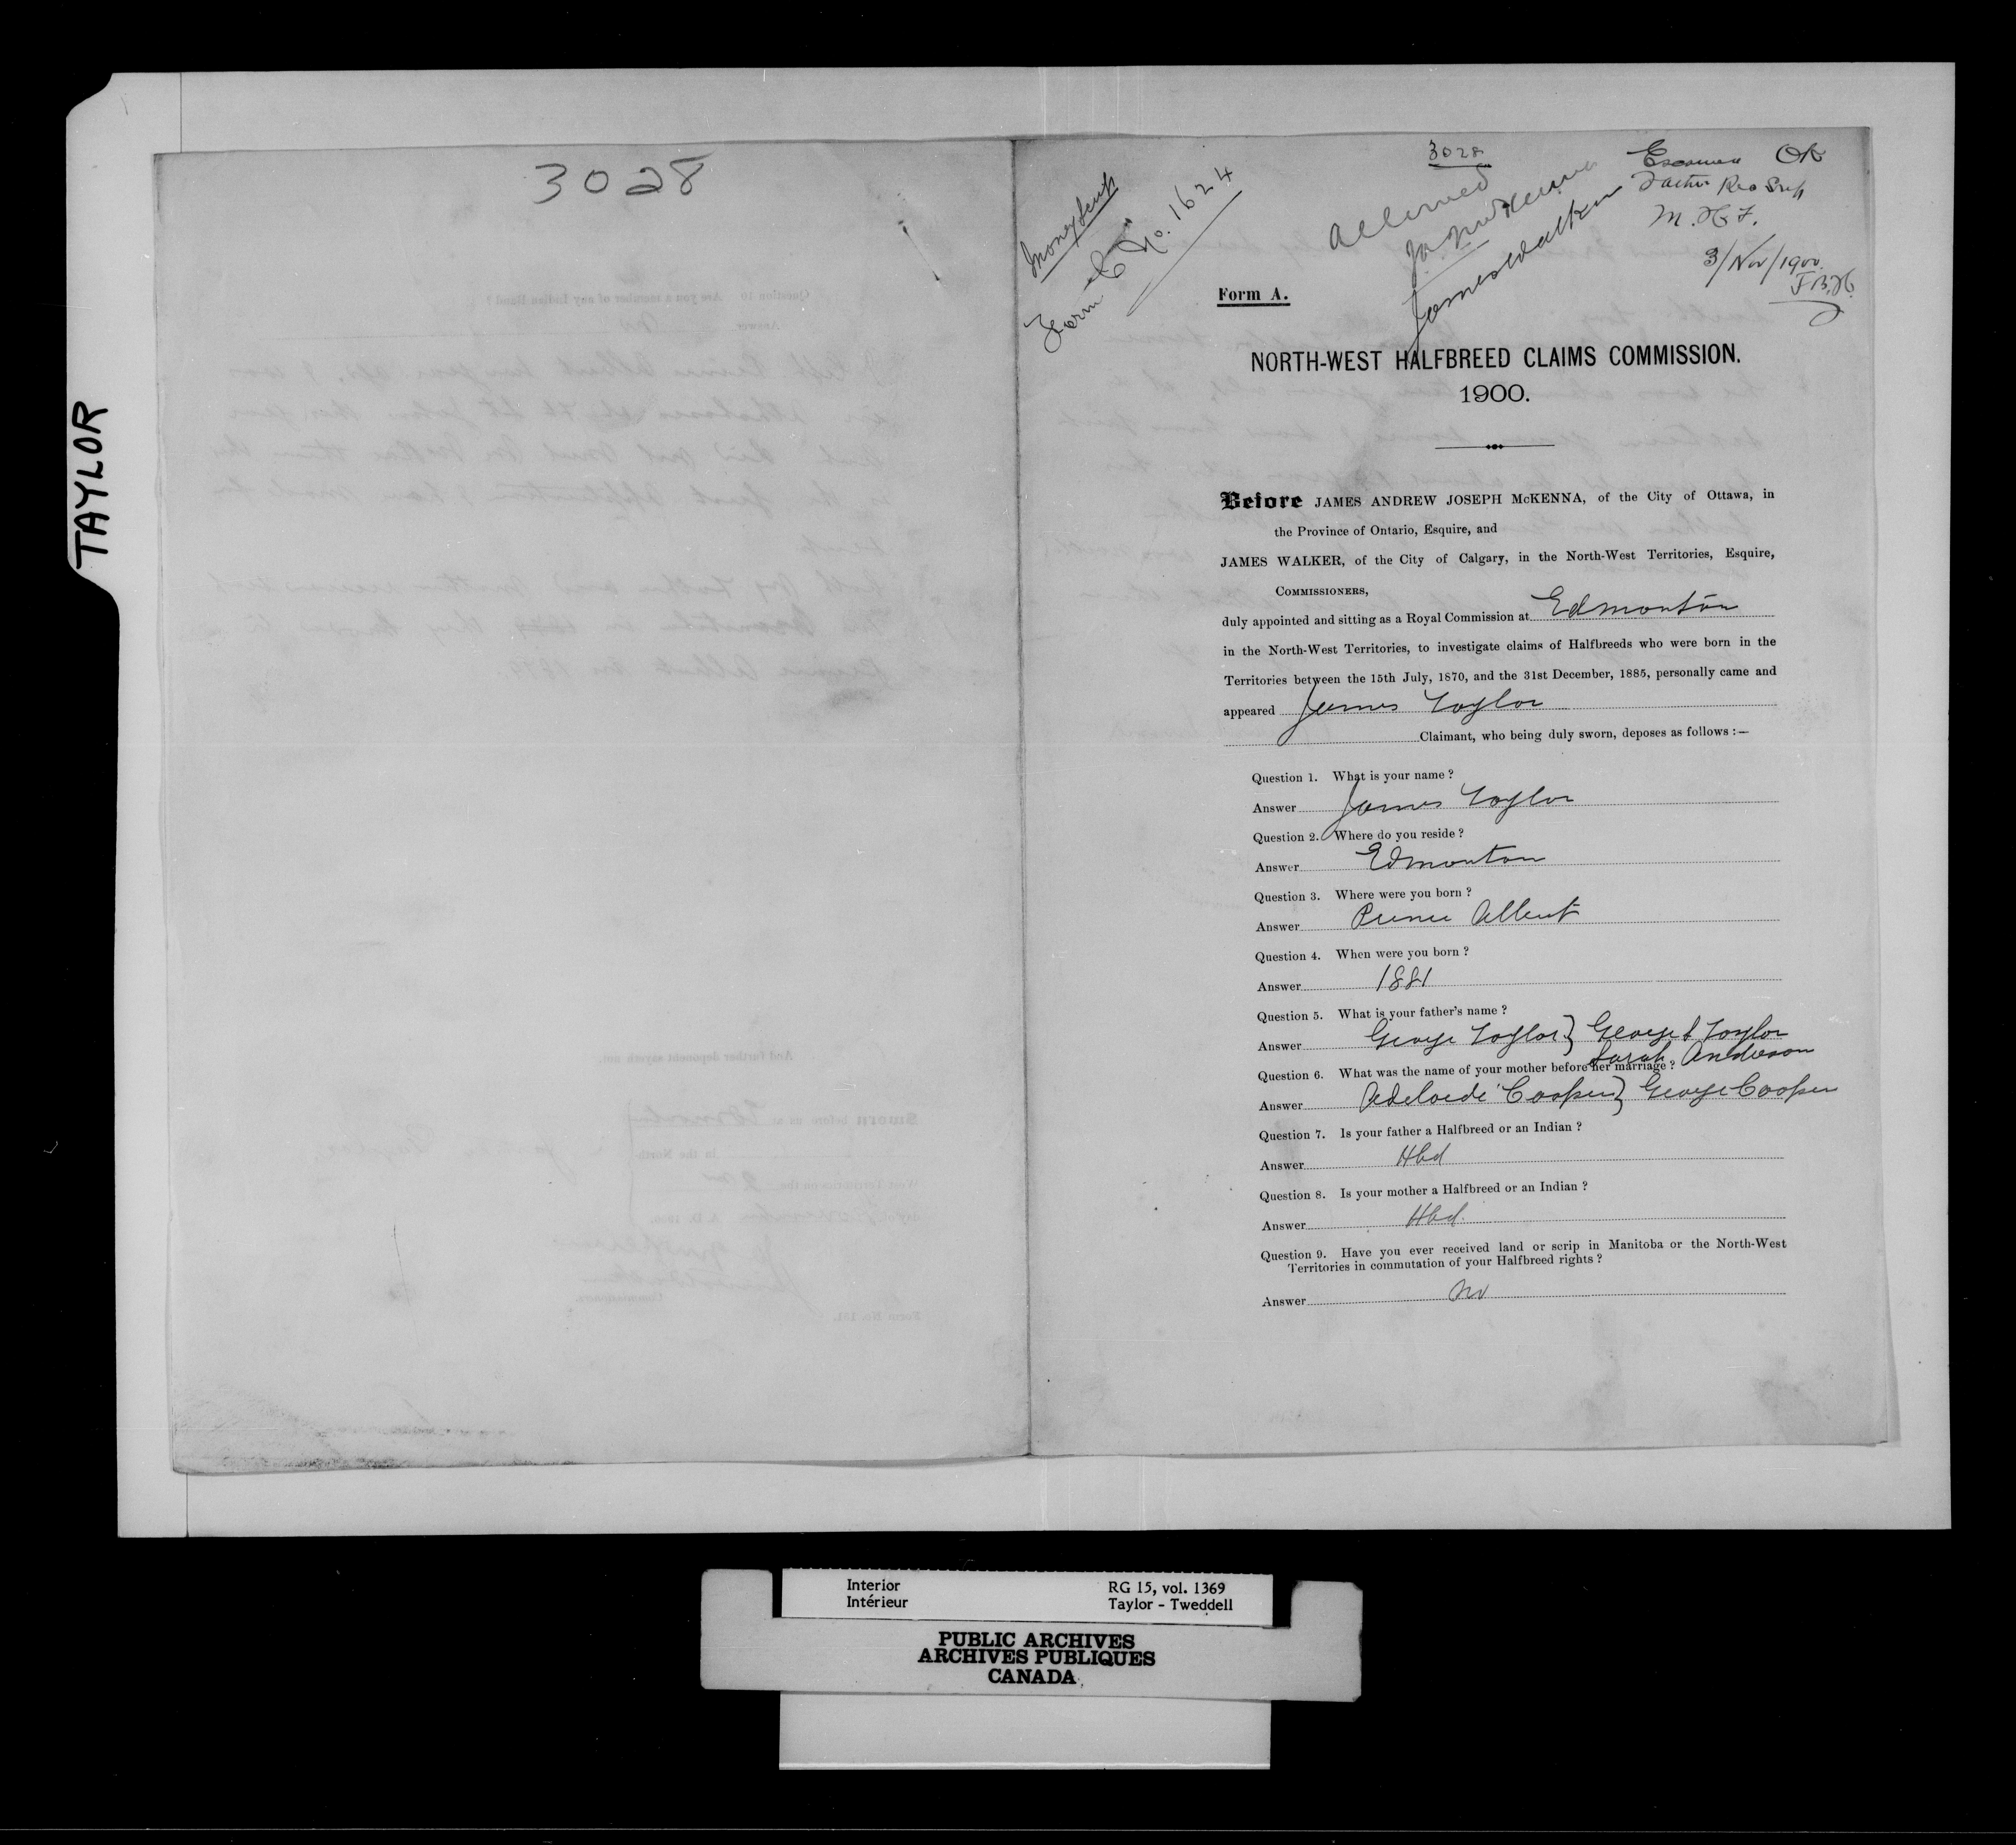 TAYLOR
3028
money scrip
Form C No. 1624
3028
Allowed
James Walker
Examined OK
Father Rec Scrip
M. H F.
3/Nov/1900
J B. H.
Form A.
NORTH-WEST HALFBREED CLAIMS COMMISSION.
1900.
Before JAMES ANDREW JOSEPH McKENNA, of the City of Ottawa, in
the Province of Ontario, Esquire, and
JAMES WALKER, of the City of Calgary, in the North-West Territories, Esquire,
COMMISSIONERS,
duly appointed and sitting as a Royal Commission at Edmonton
in the North-West Territories, to investigate claims of Halfbreeds who were born in the
Territories between the 15th July, 1870, and the 31st December, 1885, personally came and
appeared James Taylor
Claimant, who being duly sworn, deposes as follows :—
Question 1. What is your name ?
Answer James Taylor
Question 2. Where do you reside ?
Answer Edmonton
Question 3. Where were you born ?
Answer Prince Albert
Question 4. When were you born ?
Answer 1881
Question 5. What is your father's name ?
Answer George Taylor } George Taylor
Sarah Anderson
Question 6. What was the name of your mother before her marriage ?
Answer Adelaide Cooper } George Cooper
Question 7. Is your father a Halfbreed or an Indian ?
Answer Hbd
Question 8. Is your mother a Halfbreed or an Indian ?
Answer Hbd.
Question 9. Have you ever received land or scrip in Manitoba or the North-West
Territories in commutation of your Halfbreed rights ?
Answer no
Interior
Intérieur
RG 15, vol. 1369
Taylor - Tweddell
PUBLIC ARCHIVES
ARCHIVES PUBLIQUES
CANADA